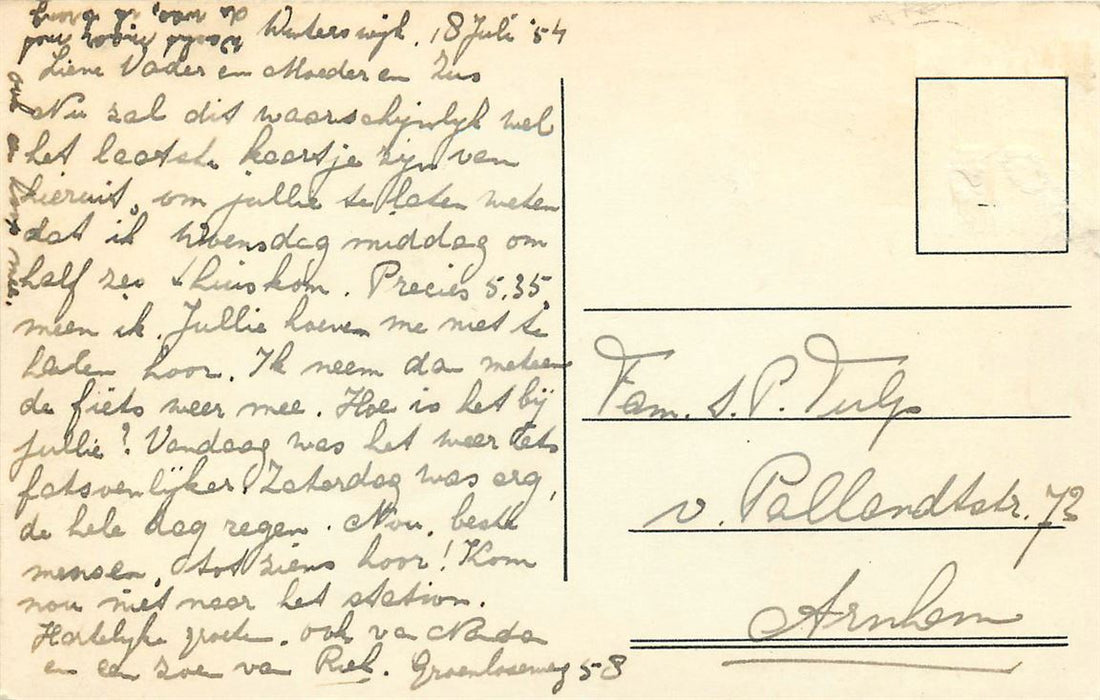 Winterswijk, 18 Juli '54
Lieve Vader en Moeder en Zus
Nu zal dit waarschijnlijk wel
het laatste kaartje zijn van
hieruit, om jullie te laten weten
dat ik Woensdag middag om
half zes thuiskom. Precies 5.35,
meen ik. Jullie hoeven me niet te
halen hoor. Ik neem dan meteen
de fiets weer mee. Hoe is het bij
jullie? Vandaag was het weer iets
fatsoenlijker. Zaterdag was erg,
de hele dag regen. Nou, beste
mensen, tot ziens hoor! Kom
nou niet naar het station.
Hartelijke groeten, ook van Nanda
en een zoen van Riek. Groenloseweg 58
Fam. S. P. Tulp
v. Pallandtstr. 73
Arnhem